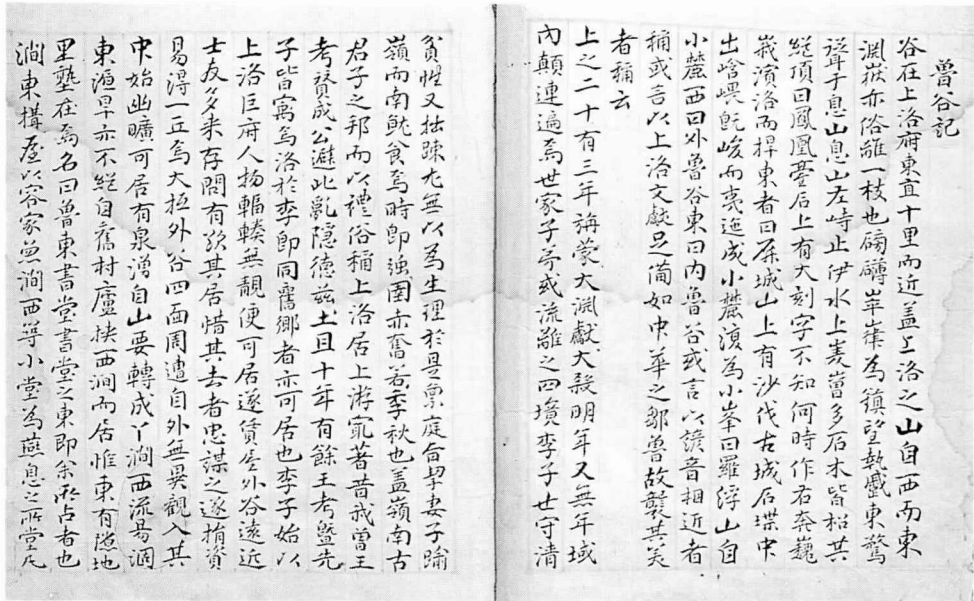 魯谷記
谷在上洛府東直十里而近盖上洛之山自西而東
淵嶽亦俗離一枝也磅礴崒嵂為鎮望執戲東驚
聳于息山息山左峙止伊水上嵬嵓多石木皆松其
絕頂曰鳳凰臺臺上有大刻字不知何時作右奔巍
峩濱洛而捍東者曰屏城山上有沙伐古城石堞中
出峆㟴旣峻而夷迤成小麓濵為小峯曰羅浮山自
小麓西曰外魯谷東曰內魯谷或言以諺音相近者
稱或言以上洛文獻足備如中華之鄒魯故襲其美
者稱云
上之二十有三年旃蒙大淵獻大殺明年又無年域
內顛連逼為世家子亦或流離之四境李子世守清
貧性又拙踈尤無以為生理於是稟庭命挈妻子踰
嶺而南就食焉時卽強圉赤奮若季秋也盖嶺南古
君子之邦而以禮俗稱上洛居上游㝡著昔我曾王
考贇成公避北亂隱德茲土且十年有餘王考曁先
子皆寓焉洛於李卽同舊鄉者亦可居也李子始以
上洛巨府人物輻輳無靚便可居遂賃屋外谷遠近
士友多来存問有欲其居惜其去者忠謀之遂捐資
易得一丘焉大抵外谷四面周遭自外無異觀入其
中始幽曠可居有泉澇自山要轉成丫澗西流易涸
東滬旱亦不絕自舊村廬挾西澗而居惟東有隙地
里塾在焉名曰魯東書堂書堂之東卽余所占者也
澗東搆屋以容家兼澗西等小堂為燕息之所堂凡